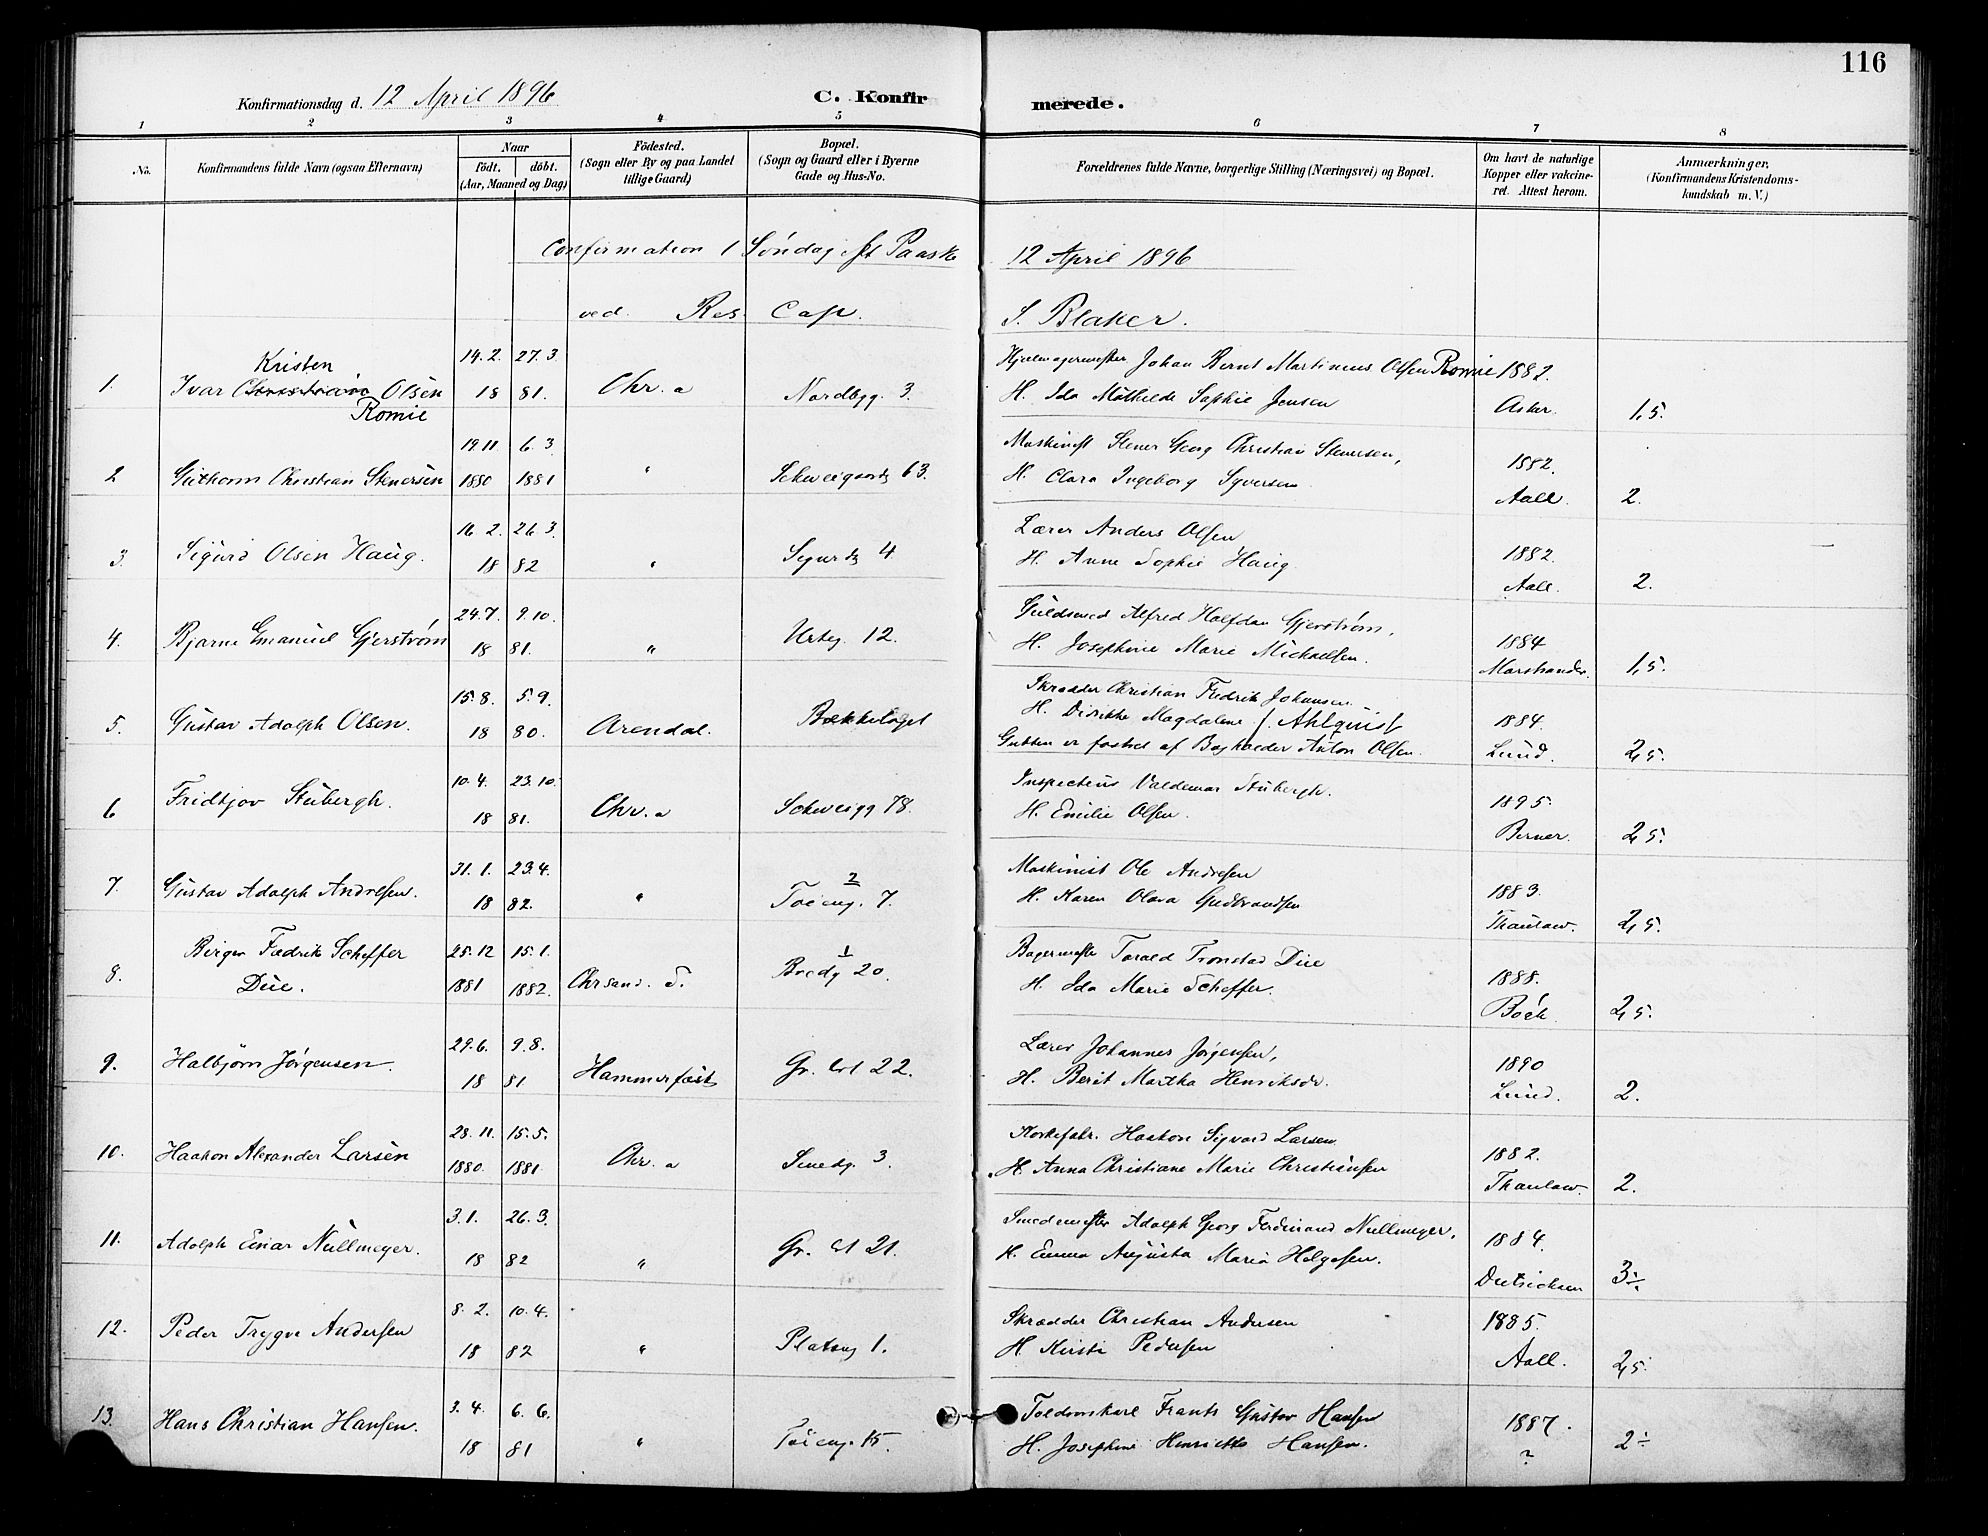 116
Konfirmationsdag d. 12 April 1896
C. Konfirmerede.
1 2 3 4 5 6 7 8
No.
Konfirmandens fulde Navn (ogsaa Efternavn)
Naar
födt. döbt.
(Aar, Maaned og Dag)
Födested.
(Sogn eller By og paa Landet
tillige Gaard)
Bopæl.
(Sogn og Gaard eller i Byerne
Gade og Hus-No.
Forældrenes fulde Navne, borgerlige Stilling (Næringsvei) og Bopæl.
Om havt de naturlige
Kopper eller vakcine-
ret. Attest herom.
Anmærkninger,
(Konfirmandens Kristendoms-
kundskab m. V.)
Confirmation 1 Søndag Paaske 12 April 1896
ved Res. Cap. S. Blaker.
Kristen 14. 2. 27. 3. Johan Bernt Martinus Olsen Romie 1882.
1. Ivar Christian Olsen 18 81. Chr. a Nordbyg. 3. H. Ida Mathilde Sophie Jensen Asker. 1,5.
Romie
19. 11 6. 3 Maskinist Stener Georg Christian Stenersen, 1882.
2 Guthorm Christian Stenersen 1880 1881 " Schweigaards 63. H. Clara Ingeborg Syversen Aall. 2.
16. 2. 26. 3. Lærer Anders Olsen 1882.
3. Sigurd Olsen Haug. 18 82 " Sigurds 4. H. Anne Sophie Haug Aall. 2.
24. 7. 9. 10. Guldsmed Alfred Halfdan Gjerstrøm, 1884
4. Bjarne Emanuel Gjerstrøm 18 81. " Urteg. 12. H. Josephine Marie Michaelsen. Marstrander. 1,5.
15. 8. 5. 9. Skrædder Christian Fredrik Johansen
5. Gustav Adolph Olsen. 18 80. Arendal. Bækkelaget H. Didrikke Magdalene f. Ahlquist 1884.
Gutten er fostret af Bogholder Anton Olsen. Lund. 2,5.
10. 4. 23. 10. Inspecteur Valdemar Stubergh. 1895.
6 Fridtjov Stubergh. 18 81. Chr. a Schweigg 78. H. Emilie Olsen. Berner. 2,5.
31. 1. 23. 4. 2 Maskinist Ole Andresen 1883.
7. Gustav Adolph Andresen. 18 82. " Toieng. 7. H. Karen Olava Gudbrandsen Thaulow. 2,5.
Birger Fredrik Scheffer 25. 12 15. 1. 1 Bagermester Torald Tronstad Due 1888.
8. Due. 1881 1882. Chrsand. S. Bredg 20. H. Ida Marie Scheffer. Boeck 2,5.
29. 6. 9. 8. Lærer Johannes Jørgensen, 1890
9. Halbjørn Jørgensen 18 81 Hammerfæst Gr. Lel 22. H. Berit Martha Henriksdr. Lund. 2.
28. 11. 15. 5. Korkefabr. Haakon Sigvard Larsen 1882.
10. Haakon Alexander Larsen 1880. 1881. Chr. a Smedg. 3. H. Anna Christiane Marie Christiansen Thaulow. 2.
3. 1. 26. 3. Smedemester Adolph Georg Ferdinand Nullmeyer, 1884.
11. Adolph Einar Nullmeyer. 18 82 " Gr. Lel 21. H. Emma Augusta Maria Helgesen. Dietrichsen 3÷
8. 2. 10. 4. Skrædder Christian Andersen 1885.
12. Peder Trygve Andersen 18 82 " Platoug 1. H. Kirsti Pedersen Aall. 2,5.
3. 4. 6. 6. Toldvoskarl Frants Gustav Hansen 1887.
13. Hans Christian Hansen. 18 81 " Töieng. 15. H. Josephine Henriette Hansen. ? 2÷